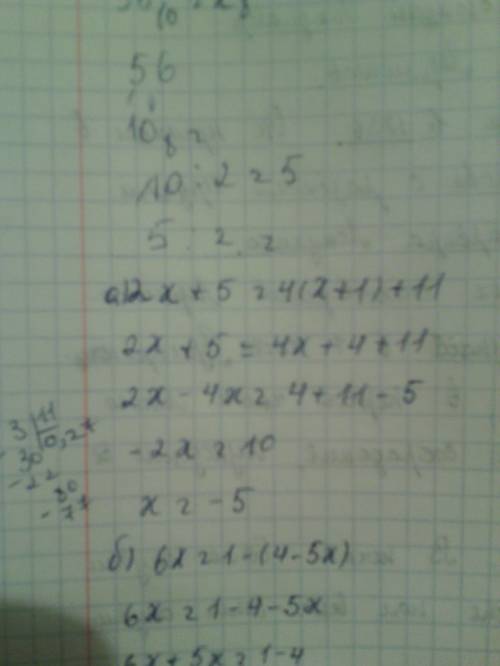 56
10₈ =
10 : 2 = 5
5 : 2 =
а) 2x + 5 = 4(x+1)+11
2x + 5 = 4x + 4 + 11
2x - 4x = 4 + 11 - 5
-2x = 10
x = -5
б) 6x = 1-(4-5x)
6x = 1-4-5x
6x + 5x = 1-4
3 11
30 0,27
-22
80
-77